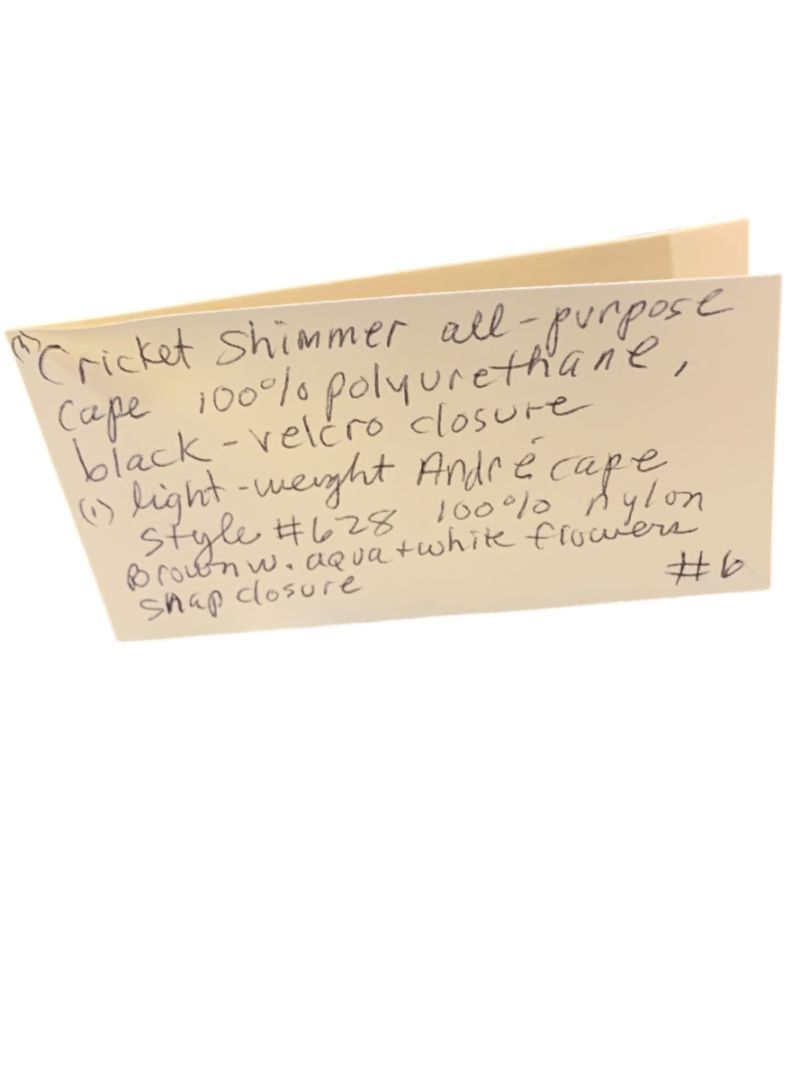 (1) Cricket Shimmer all-purpose
Cape 100% polyurethane,
black-velcro closure
(1) light-weight André cape
style #628 100% nylon
Brown w. aqua + white flowers
snap closure
#6